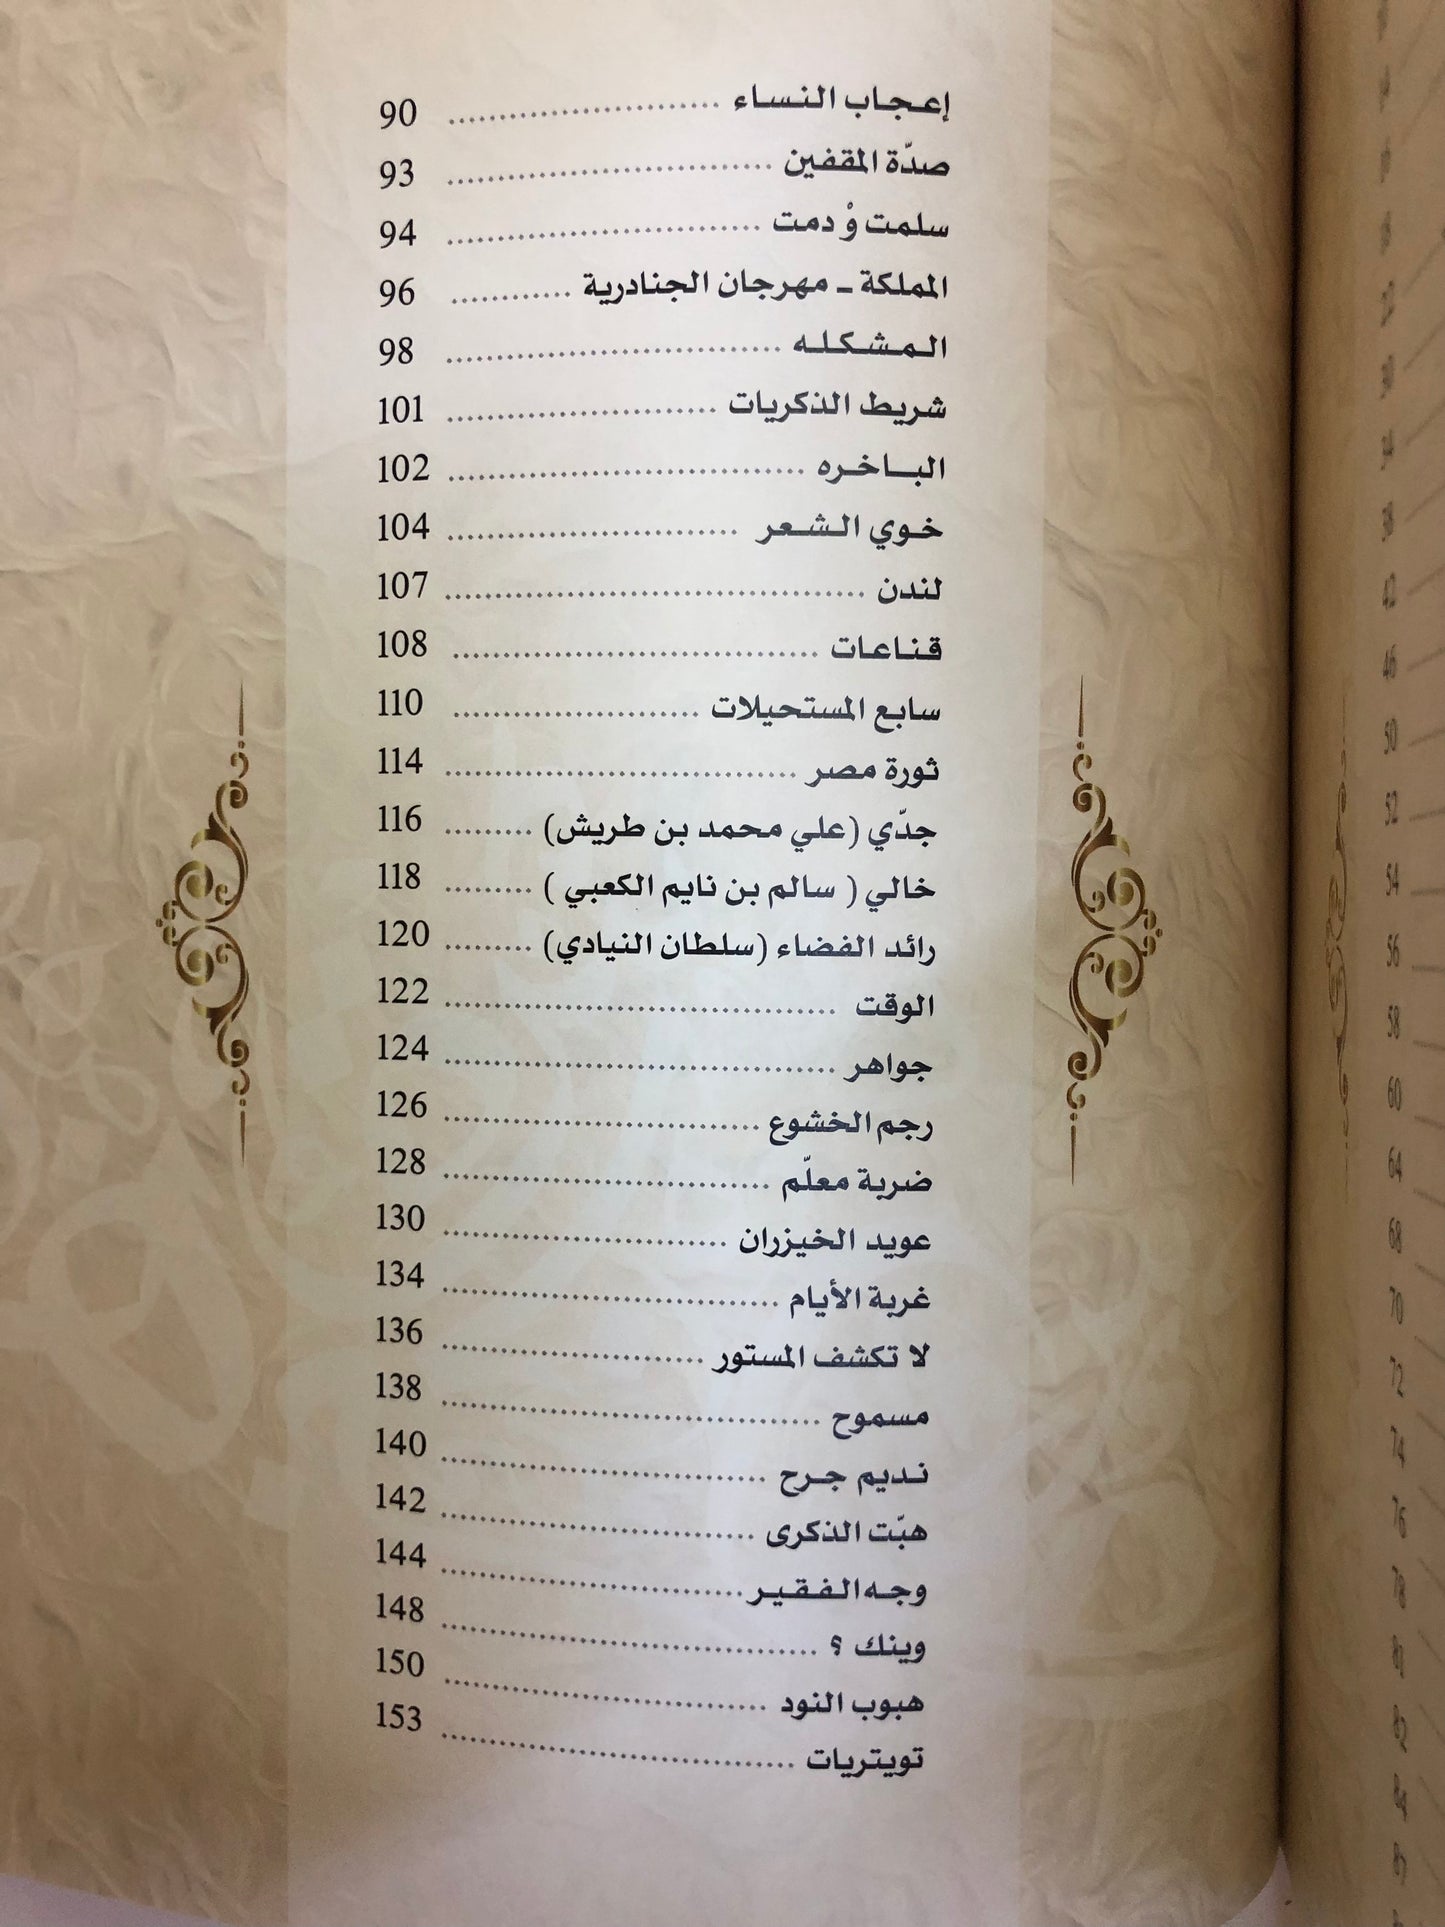 إعجاب النساء ........................... 90
صدّة المقفين ................................ 93
سلمت وْ دمت ............................... 94
المملكة ـ مهرجان الجنادرية ............ 96
المشكله ................................. 98
شريط الذكريات ........................... 101
الباخره .................................... 102
خوي الشعر ............................. 104
لندن .......................................... 107
قناعات .................................... 108
سابع المستحيلات ........................ 110
ثورة مصر ................................... 114
جدّي (علي محمد بن طريش) ......... 116
خالي ( سالم بن نايم الكعبي ) ......... 118
رائد الفضاء (سلطان النيادي) ......... 120
الوقت ....................................... 122
جواهر ....................................... 124
رجم الخشوع ................................ 126
ضربة معلّم ................................. 128
عويد الخيزران ............................ 130
غربة الأيام .................................. 134
لا تكشف المستور .......................... 136
مسموح ...................................... 138
نديم جرح ................................ 140
هبّت الذكرى ............................... 142
وجه الفقير .............................. 144
وينك ؟ ...................................... 148
هبوب النود ................................ 150
تويتريات ................................... 153
38
42
46
50
52
54
56
58
60
64
68
70
72
74
76
78